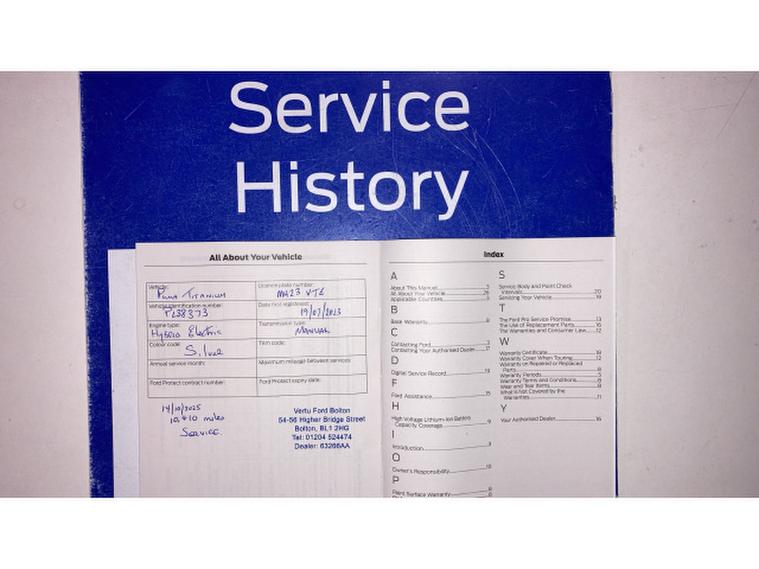 Service
History
All About Your Vehicle
Vehicle: Puma Titanium
Licence plate number:
Vehicle identification number: PL38373
Date first registered: 19/07/2023
Engine type: Hybrid Electric
Transmission type: Manual
Colour code: Silver
Trim code:
Annual service month:
Maximum mileage between services:
Ford Protect contract number:
Ford Protect expiry date:
14/10/2025
miles
Service.
Vertu Ford Bolton
54-56 Higher Bridge Street
Bolton, BL1 2HG
Tel: 01204 524474
Dealer: 63266AA
Index
A
About This Manual 3
All About Your Vehicle
Applicable Countries
B
Base Warranty
C
Contacting Ford
Contacting Your Authorised Dealer
D
Digital Service Record
F
Ford Assistance 15
H
High Voltage Lithium-Ion Battery
Capacity Coverage 9
I
Introduction 3
O
Owner's Responsibility 10
P
Paint Surface Warranty
S
Service Body and Paint Check
Intervals 20
Servicing Your Vehicle 19
T
The Ford Pro Service Promise 13
The Use of Replacement Parts 16
The Warranties and Consumer Law 12
W
Warranty Certificate 18
Warranty Cover When Touring 12
Warranty on Repaired or Replaced
Parts 8
Warranty Periods 5
Warranty Terms and Conditions 8
Wear and Tear Items
What is Not Covered by the
Warranties 11
Y
Your Authorised Dealer 16